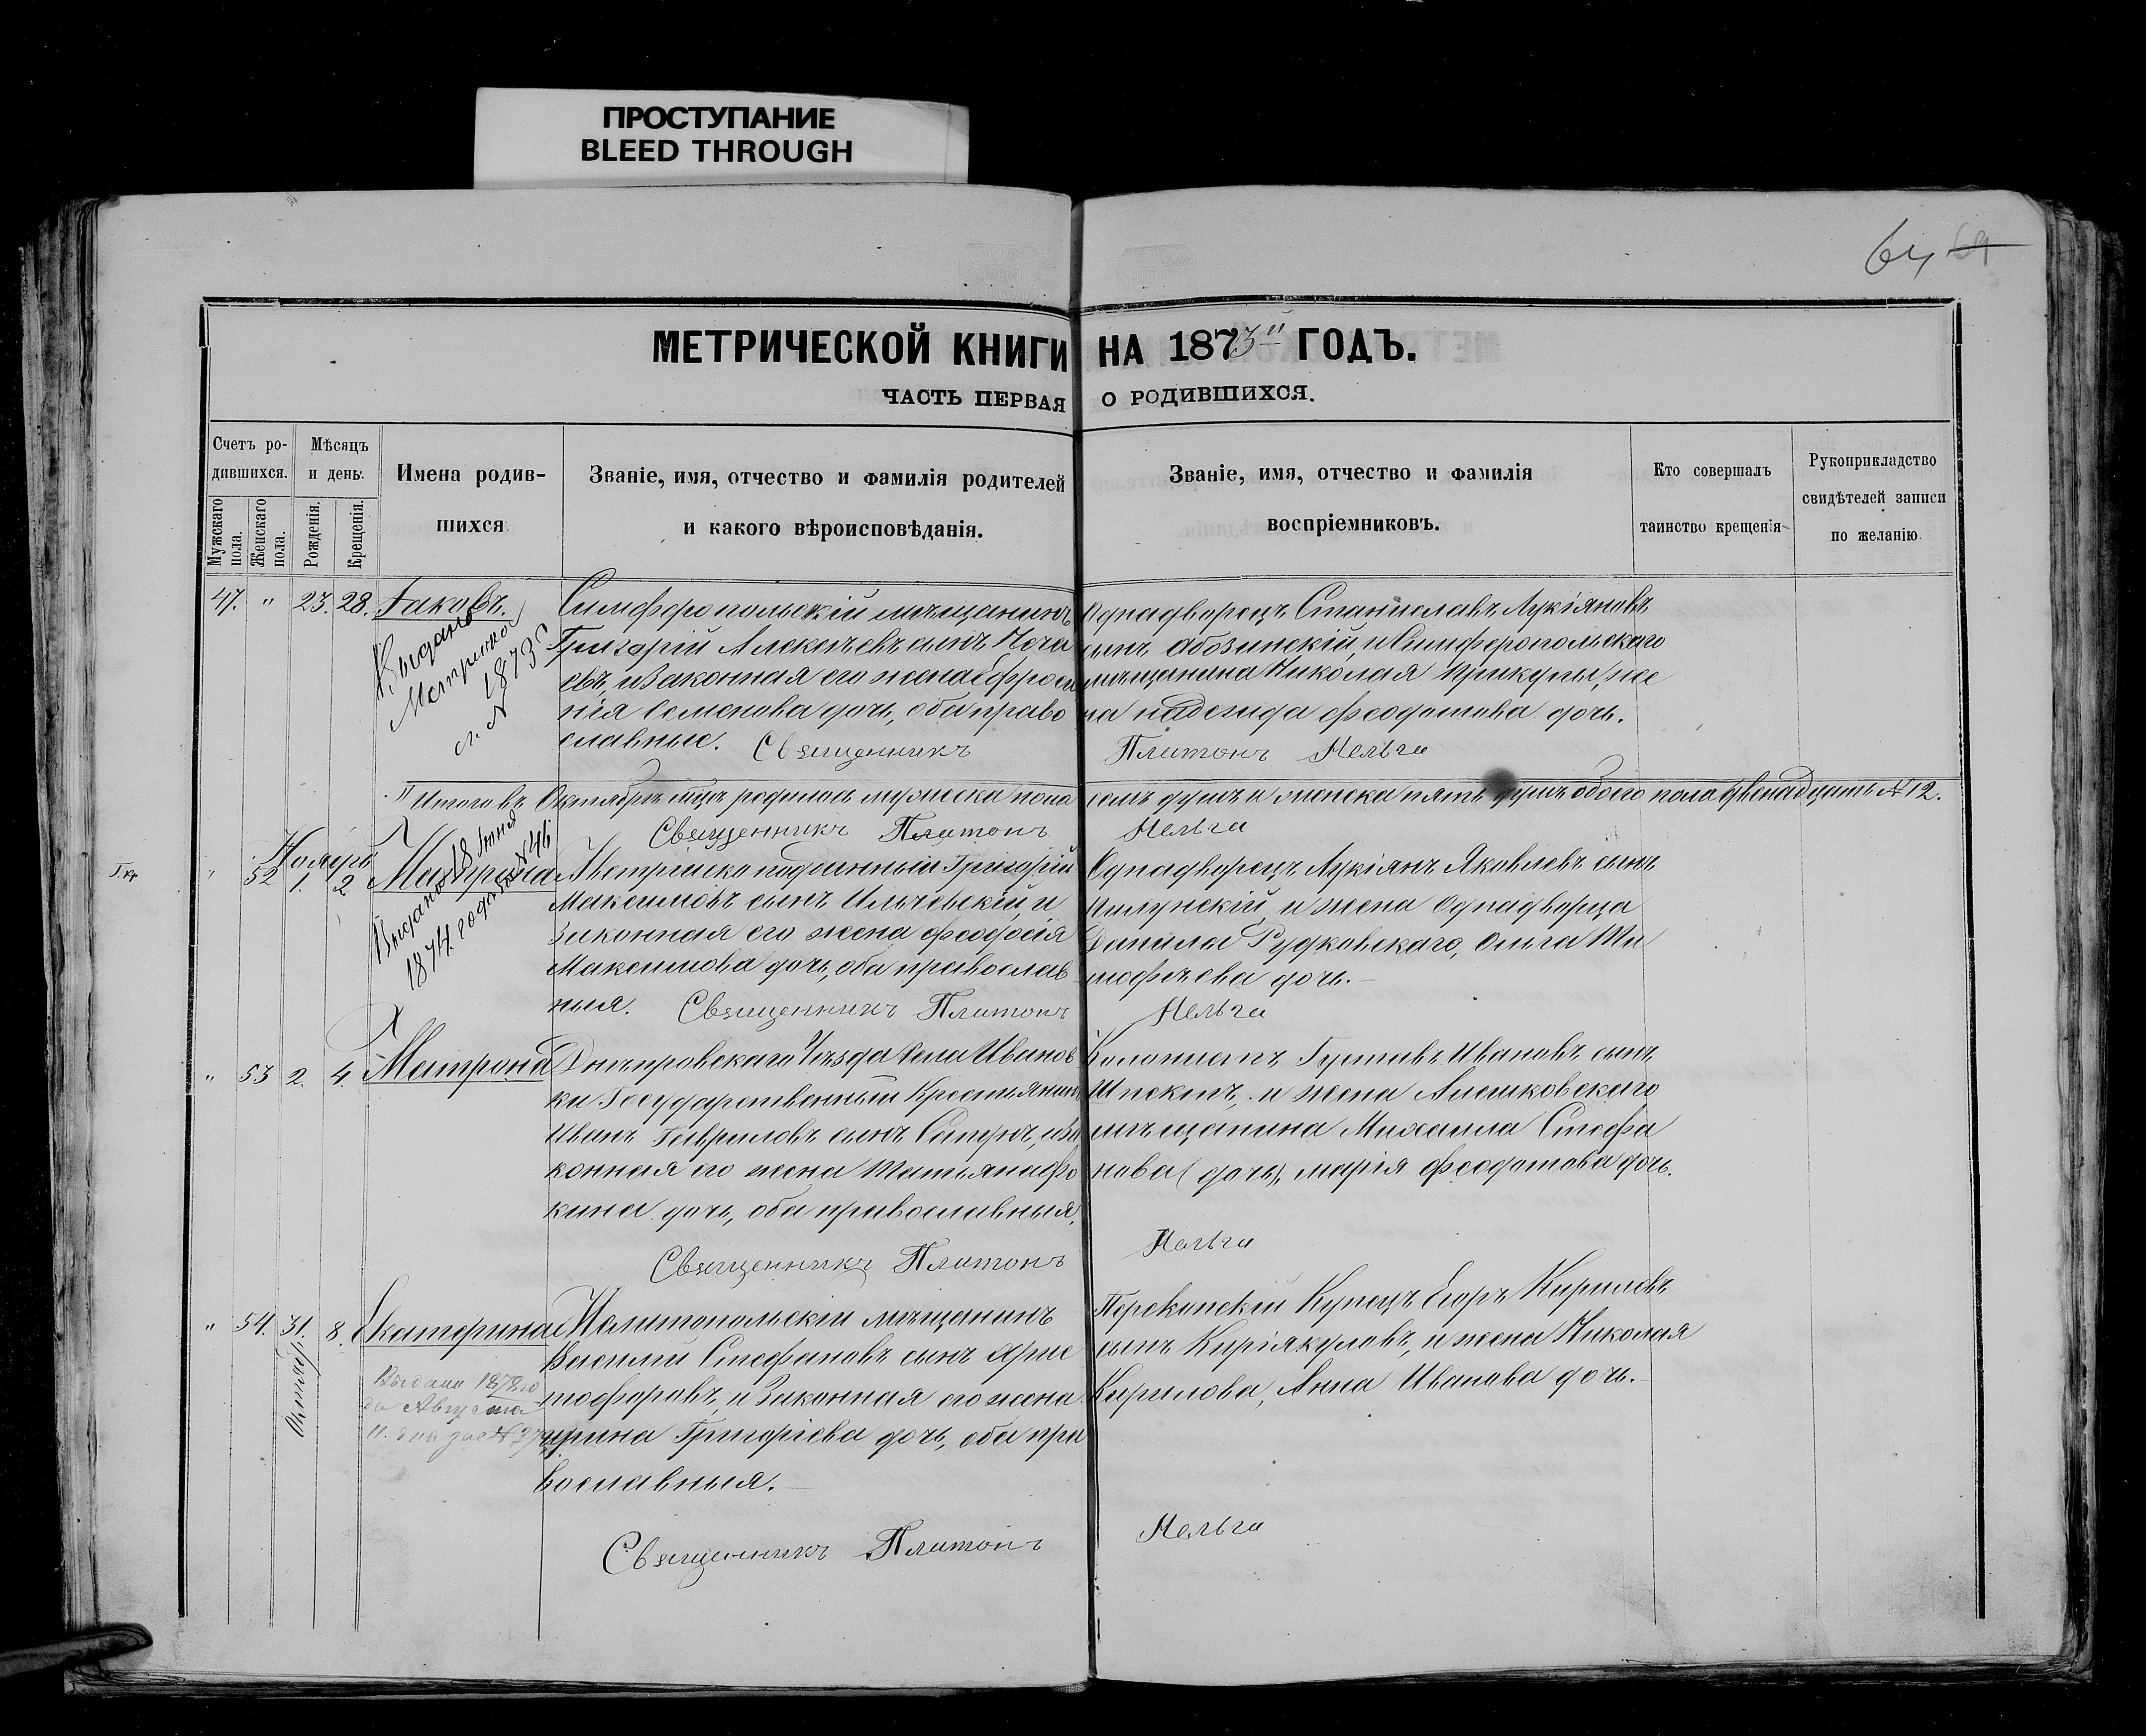 ПРОСТУПАНИЕ
BLEED THROUGH
64 69
МЕТРИЧЕСКОЙ КНИГИ НА 1873й ГОДЪ.
ЧАСТЬ ПЕРВАЯ О РОДИВШИХСЯ.
Счетъ ро-
дившихся.
Мужскаго пола.
Женскаго пола.
Мѣсяцъ
и день.
Рожденія.
Крещенія.
Имена родив-
шихся
Званіе, имя, отчество и фамилія родителей
и какого вѣроисповѣданія.
Званіе, имя, отчество и фамилія
воспріемниковъ.
Кто совершалъ
таинство крещенія
Рукоприкладство
свидѣтелей записи
по желанію.
47. " 23. 28. Іаковъ.
Выдано
Метрика
1873
Симферопольскій мѣщанинъ
Григорій Алексѣевъ сынъ Неча
евъ, и законная его жена Ефроси
нія Семенова дочь, оба право
славные. Священникъ
Однадворецъ Станиславъ Лукіяновъ
сынъ Абозинскій, и Симферопольскаго
мѣщанина Николая Прикупы, же
на Надежда Феодотова дочь.
Платонъ Мельга
Итого въ Октябрѣ мцѣ родилось мужеска пола семь душъ и женска пять душъ обоего пола двенадцать № 12.
Священникъ Платонъ Мельга
Ноябрь
" 52 1. 2 Матрона
Выдано 18 Іюня
1874 года № 46
Австрійско подданный Григорій
Максимовъ сынъ Ильчевскій, и
законная его жена Феодосія
Максимова дочь, оба православ
ныя. Священникъ Платонъ Мельга
Однадворецъ Лукіянъ Яковлевъ сынъ
и жена Однадворца
Данила Рудковскаго, Ольга Ти
мофѣева дочь.
" 53 2. 4. Матрона
Днѣпровскаго Уѣзда Села Иванов
ки Государственный Крестьянинъ
Иванъ Гавриловъ сынъ и за
конная его жена Татьяна Фо
кина дочь, оба православныя,
Священникъ Платонъ Мельга
Колонистъ Густавъ Ивановъ сынъ
и жена Алешковскаго
мѣщанина Михаила Стефа
нова (дочь), Марія Феодотова дочь.
" 54. 31. 8. Екатерина
Октября
Выдана 1878 го
да Августа
11. дня за № 37
Мелитопольскій мѣщанинъ
Василій Стефановъ сынъ Хрис
тофоровъ, и Законная его жена
Ирина Григоріева дочь, оба пра
вославныя.
Перекопскій Купецъ Егоръ Кириловъ
сынъ Киріякуловъ, и жена Николая
Кирилова, Анна Иванова дочь.
Священникъ Платонъ Мельга